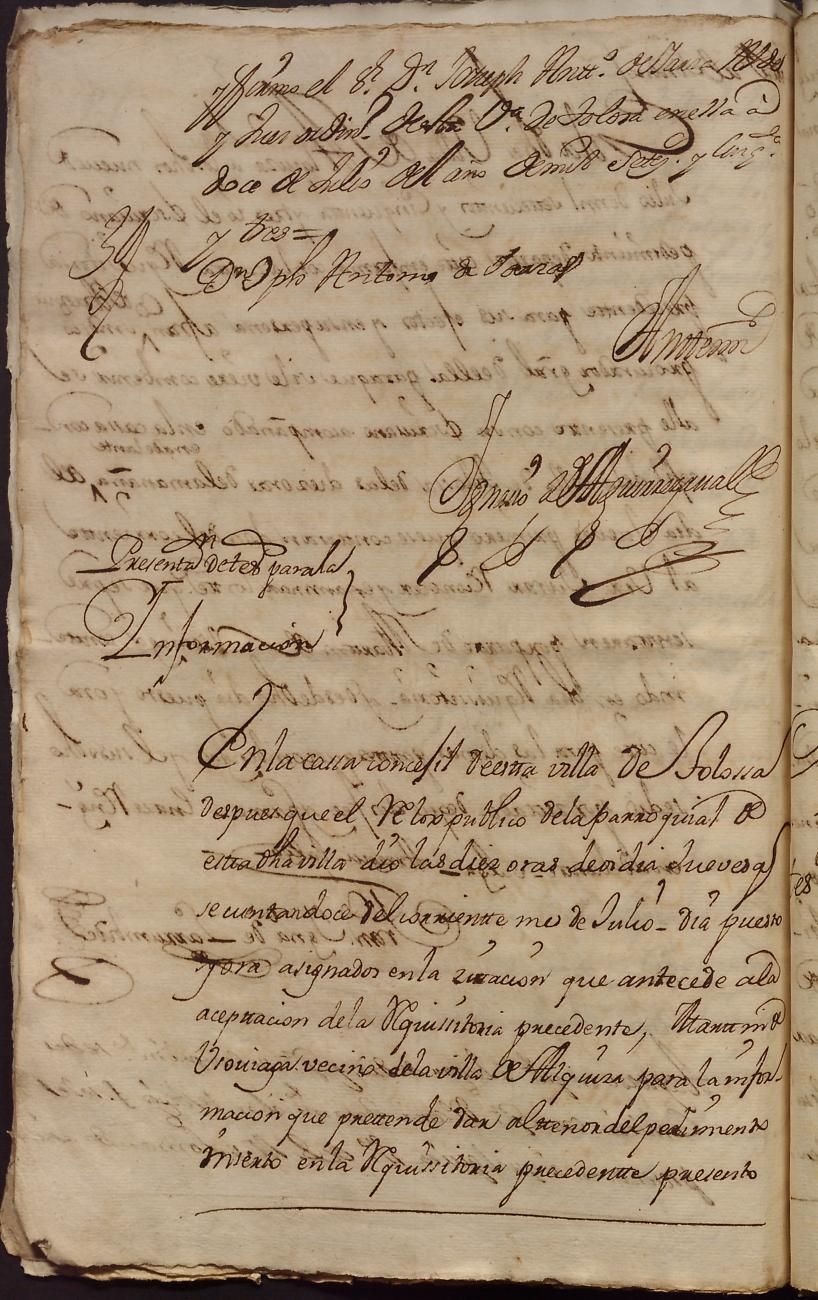 y firmo el S.r D.n Joseph Antt.o de Yarza Alcde
y Juez ordin.o desta V.a de Tolosa en ella à
doce de Julio del año de mill Setez.s y cinq.ta
y tres =
Dn Jph Antonio de Yarza
Antemi
Ignacio de
Presentaz.n de tes parala
Informacion
En la cassa concejil de estta villa de Tolossa
despues que el Relox publico de la parroquial de
estta dha villa dio las diez oras de oi dia Jueves q
se cuentan doce del corriente mes de Julio - dia puesto
y ora asignados en la zitacion que antecede ala
acepttacion de la Requissitoria precedente, Martin de
Urouiaga vecino dela villa de Alquiza para la infor
macion que prettende dar al ttenor del pedimento
inserto en la Requissitoria precedentte presento